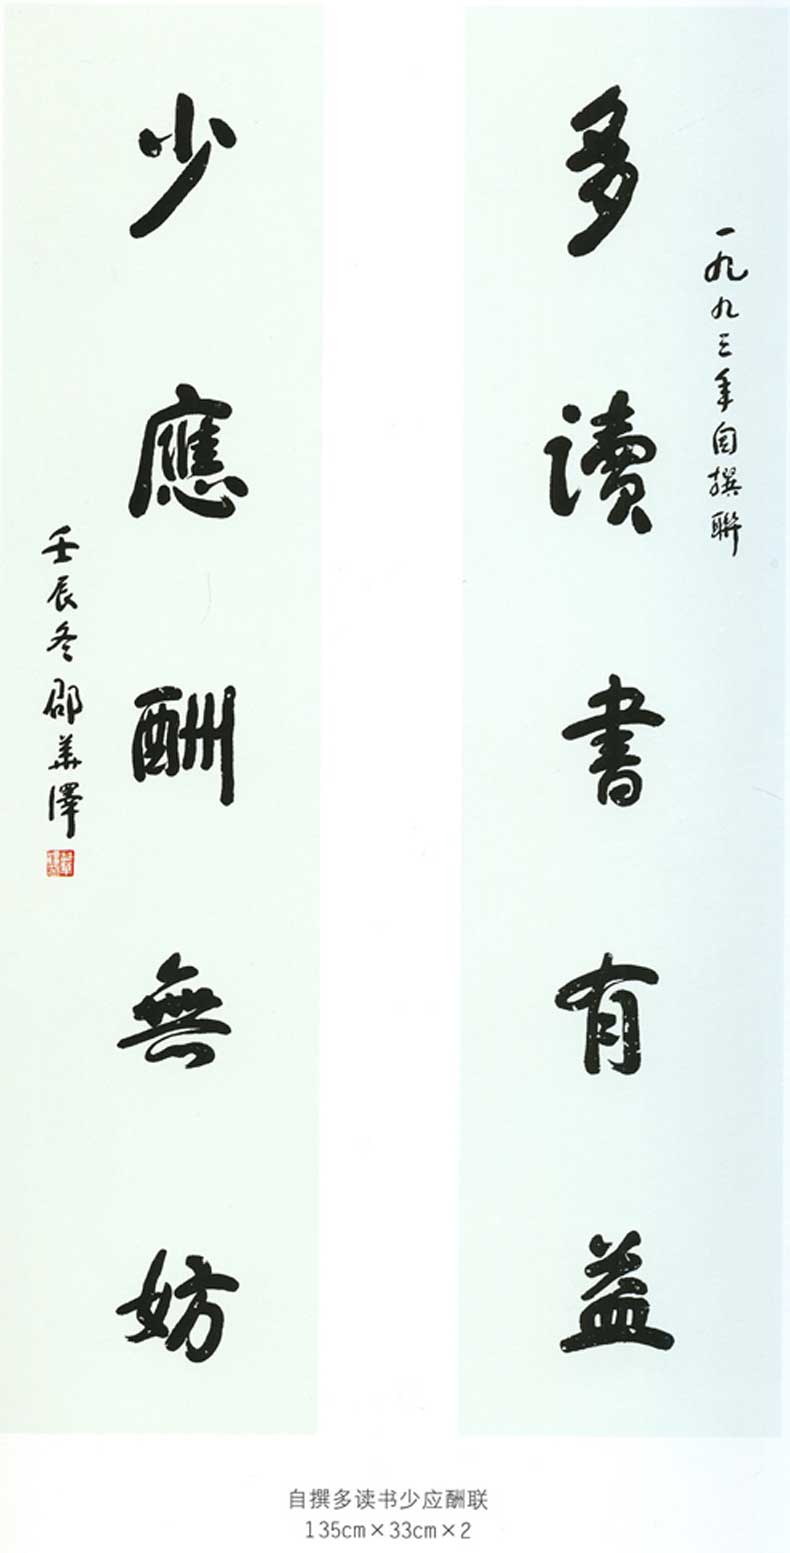 一九九三年自撰聯
多讀書有益
少應酬無妨
壬辰冬邵華澤
自撰多读书少应酬联
135cm×33cm×2